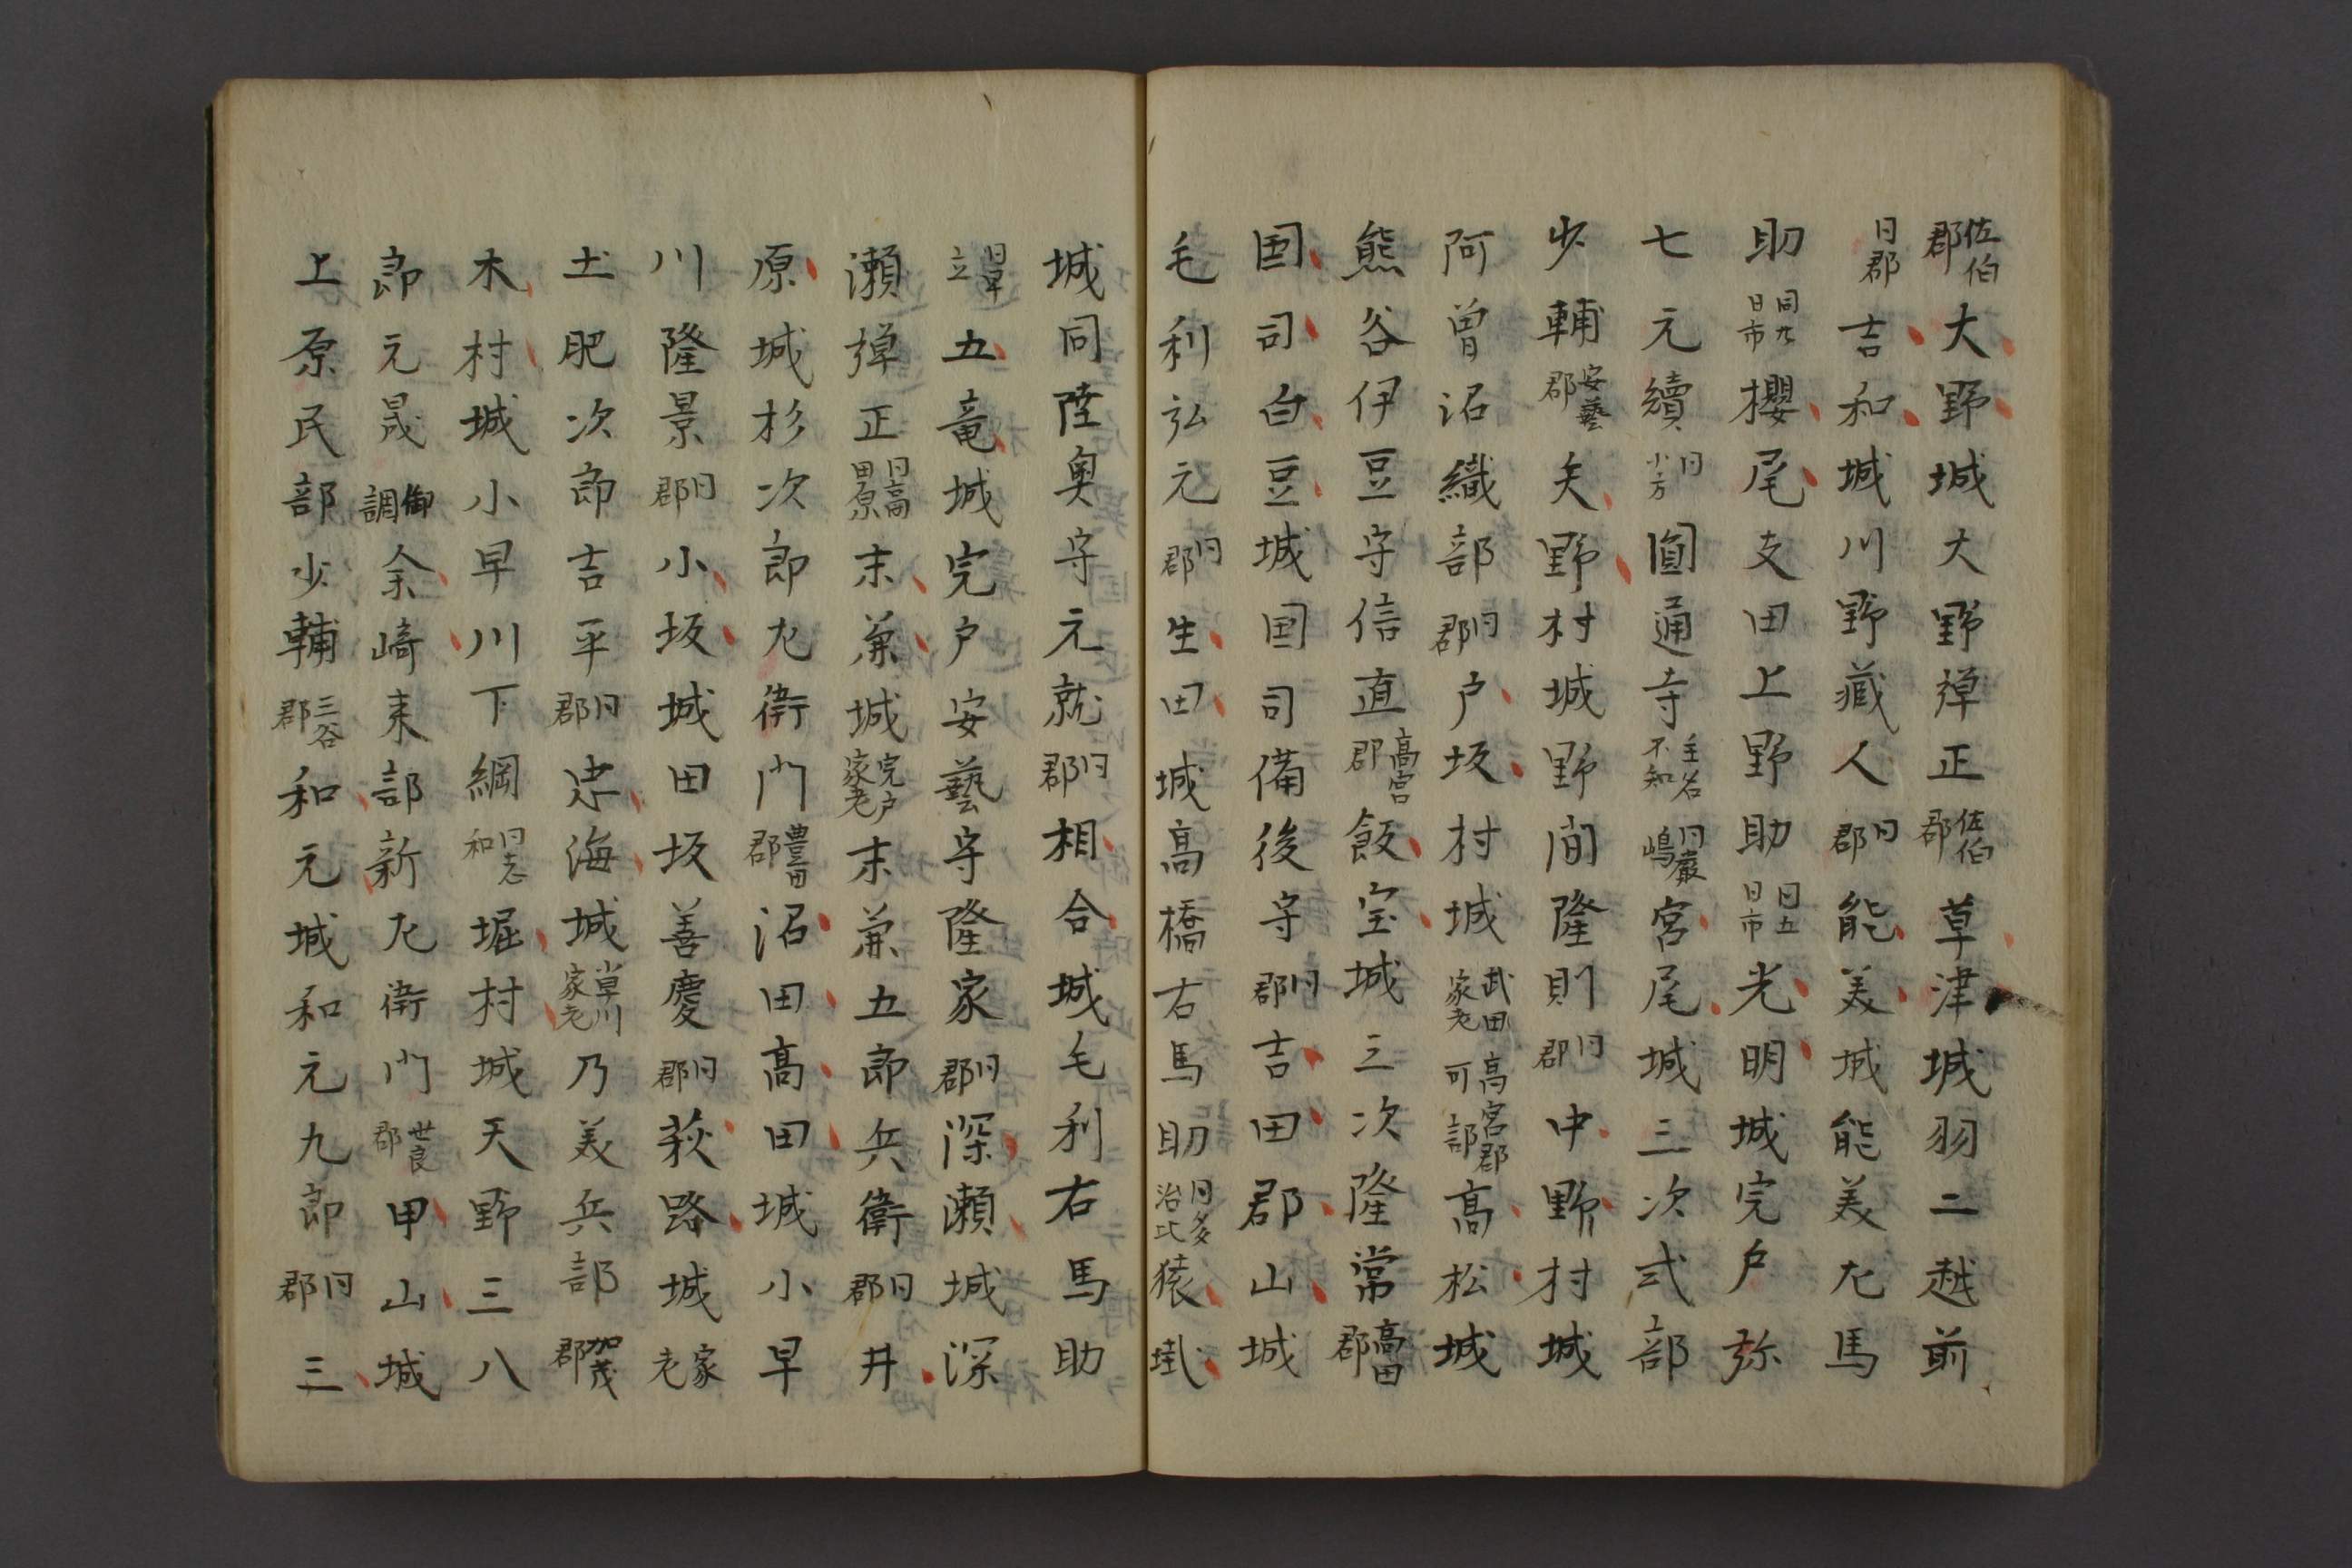 佐伯郡大野城大野弾正佐伯郡草津城羽二越前
同郡吉和城川野蔵人同郡能美城能美左馬
助同廿日市櫻尾支田上野助同五日市光明城完戸弥
七元續同小方圓通寺主名不知同嚴嶋宮尾城三次式部
少輔安藝郡矢野村城野間隆則同郡中野村城
阿曽沼織部同郡戸坂村城武田家老高宮郡可部高松城
熊谷伊豆守信直高宮郡飯室城三次隆常高田郡
国司白豆城国司備後守同郡吉田郡山城
毛利弘元同郡生田城高橋右馬助同多治比猿掛
城同陸奥守元就同郡相合城毛利右馬助
同草立五竜城完戸安藝守隆家同郡深瀬城深
瀬弾正同高田原末兼城完戸家老末兼五郎兵衛同郡井
原城杉次郎左衛門豊田郡沼田高田城小早
川隆景同郡小坂城田坂善慶同郡萩路城家老
土肥次郎吉平同郡忠海城小早川家老乃美兵部加茂郡
木村城小早川下綱同志和堀村城天野三八
郎元晟御調余崎束部新左衛門世良郡甲山城
上原民部少輔三谷郡和元城和元九郎同郡三